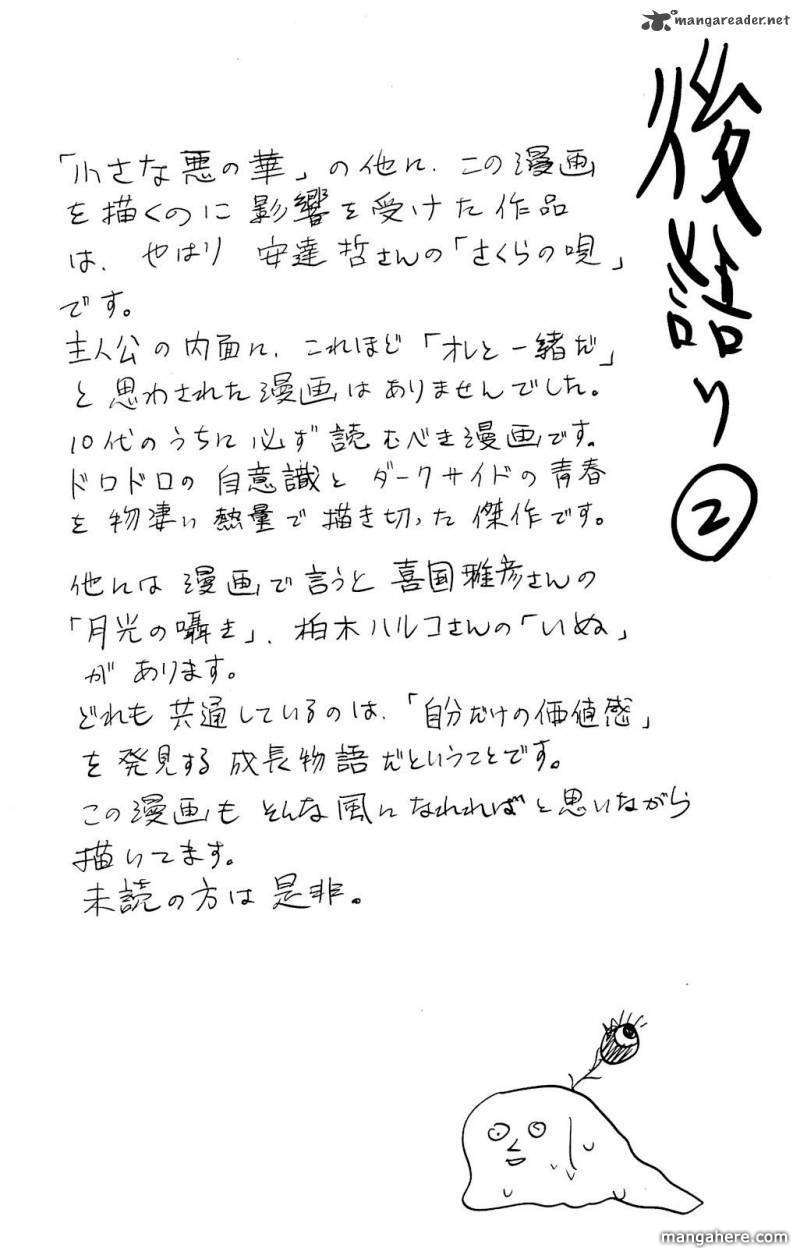 mangareader.net
後語り
②
「小さな悪の華」の他に、この漫画
を描くのに影響を受けた作品
は、やはり 安達哲さんの「さくらの唄」
です。
主人公の内面に、これほど「オレと一緒だ」
と思わされた漫画はありませんでした。
10代のうちに必ず読むべき漫画です。
ドロドロの自意識とダークサイドの青春
を物凄い熱量で描き切った傑作です。
他には漫画で言うと喜国雅彦さんの
「月光の囁き」、柏木ハルコさんの「いぬ」
があります。
どれも共通しているのは、「自分だけの価値感」
を発見する成長物語だということです。
この漫画もそんな風になれればと思いながら
描いてます。
未読の方は是非。
mangahere.com